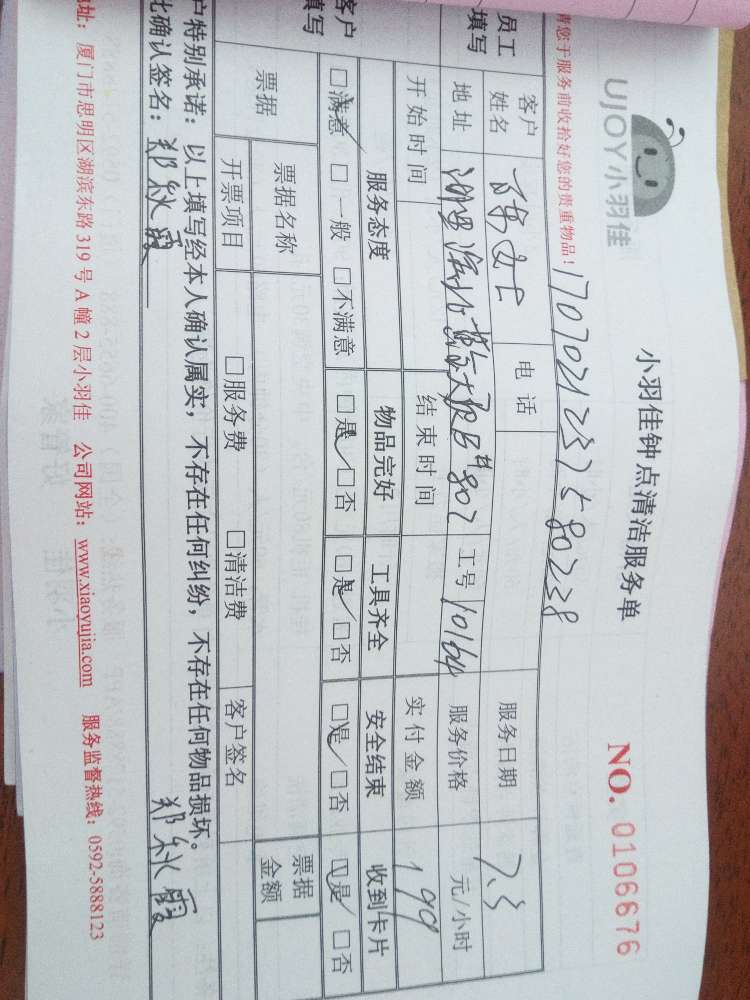 UJOY小羽佳
小羽佳钟点清洁服务单
NO. 0106676
请您于服务前收拾好您的贵重物品！
1707021237580238
员工填写
客户姓名 电话 服务日期 7.3
地址 B#802 工号 10164 服务价格 元/小时
开始时间 结束时间 实付金额 199
客户填写
服务态度 物品完好 工具齐全 安全结束 收到卡片
□满意 □一般 □不满意 □是 □否 □是 □否 □是 □否 □是 □否
票据 票据名称 票据金额
开票项目 □服务费 □清洁费 客户签名
户特别承诺：以上填写经本人确认属实，不存在任何纠纷，不存在任何物品损坏。
此确认签名：郑秋霞 郑秋霞
地址：厦门市思明区湖滨东路319号A幢2层小羽佳 公司网站：www.xiaoyujia.com 服务监督热线：0592-5888123